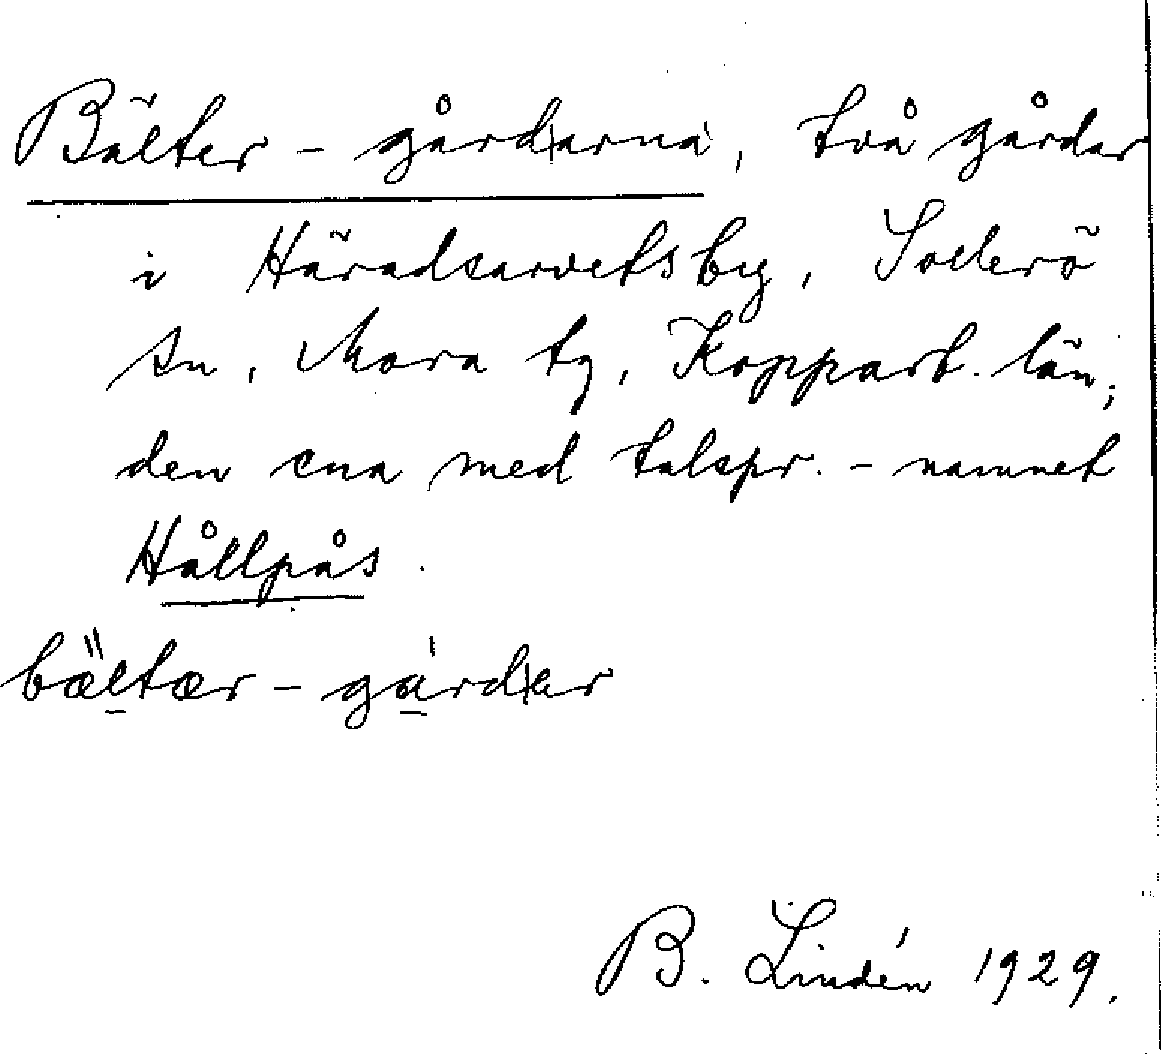 Bälter - gårdarna, två gårdar
i Häradsarvets by, Sollerö
sn, Mora tg, Kopparb. län;
den ena med talspr. - namnet
Hållpås.
bæltær - gardar
B. Lindén 1929.